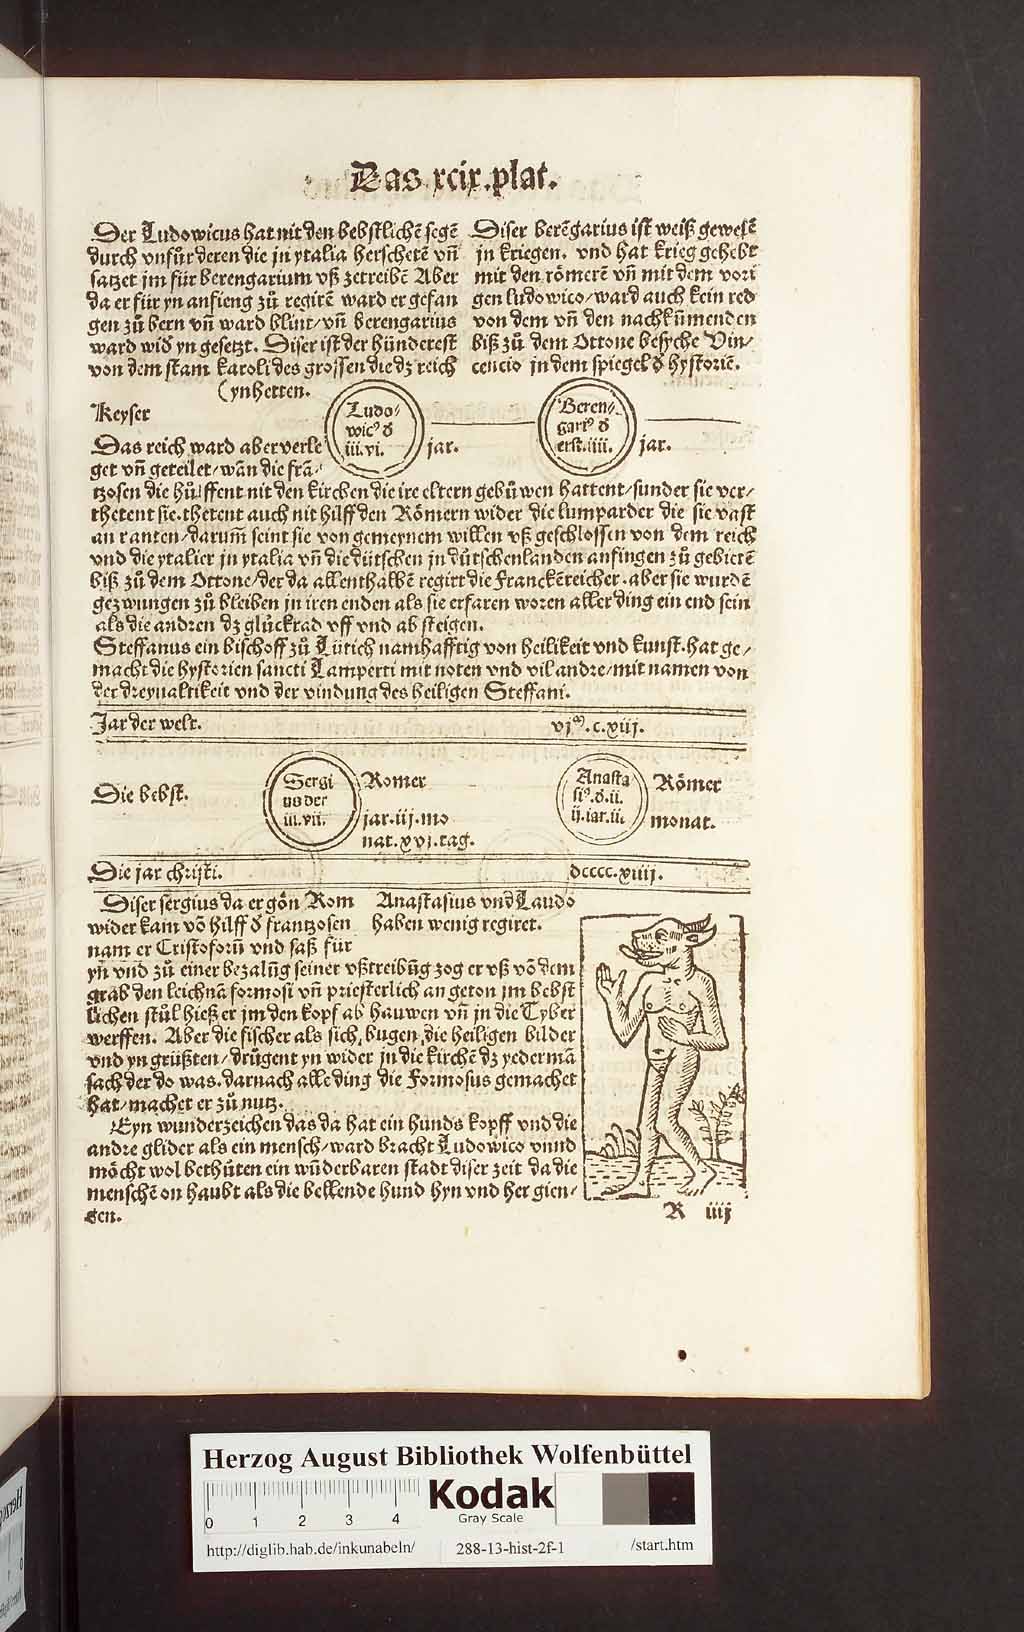 Das .xcix. plat.
Der Ludowicus hat nit den bebstlichē segē
durch vnfůr deren die jn ytalia herschetē vn̄
satzet jm für berengarium vß zetreibē Aber
da er für yn anfieng zů regirē ward er gefan
gen zů bern vn̄ ward blint/vn̄ berengarius
ward wid̄ yn gesetzt. Diser ist der hünderest
von dem stam karoli des grossen die dz reich
(ynhetten.
Diser berēgarius ist weiß gewesē
jn kriegen. vnd hat krieg gehebt
mit den römerē vn̄ mit dem vori
gen ludowico/ward auch kein red
von dem vn̄ den nachkūmenden
biß zů dem Ottone besyche Vin/
cencio jn dem spiegel d̄ hystoriē.
Keyser
Ludo/
wicꝰ d̄
iii.vi.
jar.
Beren/
gariꝰ d̄
erst.iiii.
jar.
Das reich ward aber verle
get vn̄ geteilet/wan die frā/
tzosen die hůlffent nit den kirchen die ire eltern gebůwen hattent/sunder sie ver/
thetent sie.thetent auch nit hilff den Römern wider die lumparder die sie vast
an ranten/darum̄ seint sie von gemeynem willen vß geschlossen von dem reich
vnd die ytalier jn ytalia vn̄ die dütschen jn dütschenlanden anfingen zů gebietē
biß zů dem Ottone/der da allenthalbē regirt die Franckēreicher.aber sie wurdē
gezwungen zů bleiben jn iren enden als sie erfaren woren aller ding ein end sein
als die andren dz glückrad vff vnd ab steigen.
Steffanus ein bischoff zů Lütich namhafftig von heilikeit vnd kunst.hat ge/
macht die hystorien sancti Lamperti mit noten vnd vil andre/mit namen von
der dreyualtikeit vnd der vindung des heiligen Steffani.
Jar der welt.
vjᵐ.c.xiij.
Die bebst.
Sergi
us der
iii.vii.
Romer
jar.iij.mo
nat.xvj.tag.
Anasta
siꝰ.d̄.ii.
ij.iar.ii.
Römer
monat.
Die jar christi.
dcccc.xiiij.
Diser sergius da er gön Rom
wider kam vō hilff d̄ frantzosen
nam er Cristoforū vnd saß für
yn̄ vnd zů einer bezalūg seiner vßtreibūg zog er vß vō dem
grab den leichnā formosi vn̄ priesterlich an geton jm bebst
lichen stůl hieß er jm den kopf ab hauwen vn̄ in die Tyber
werffen. Aber die fischer als sich bugen die heiligen bilder
vnd yn grüßten/drügent yn wider jn die kirchē dz yedermā
sach der do was.darnach alle ding die Formosus gemachet
hat/machet er zů nutz.
Anastasius vnd Laudo
haben wenig regiret.
Eyn wunderzeichen das da hat ein hunds kopff vnd die
andre glider als ein mensch/ward bracht Ludowico vnnd
möcht wol bethüten ein wūderbaren stadt diser zeit da die
menschē on haubt als die bellende hund hyn vnd her gien/
gen.
R iiij
Herzog August Bibliothek Wolfenbüttel
0 1 2 3 4
Kodak
Gray Scale
http://diglib.hab.de/inkunabeln/ 288-13-hist-2f-1 /start.htm